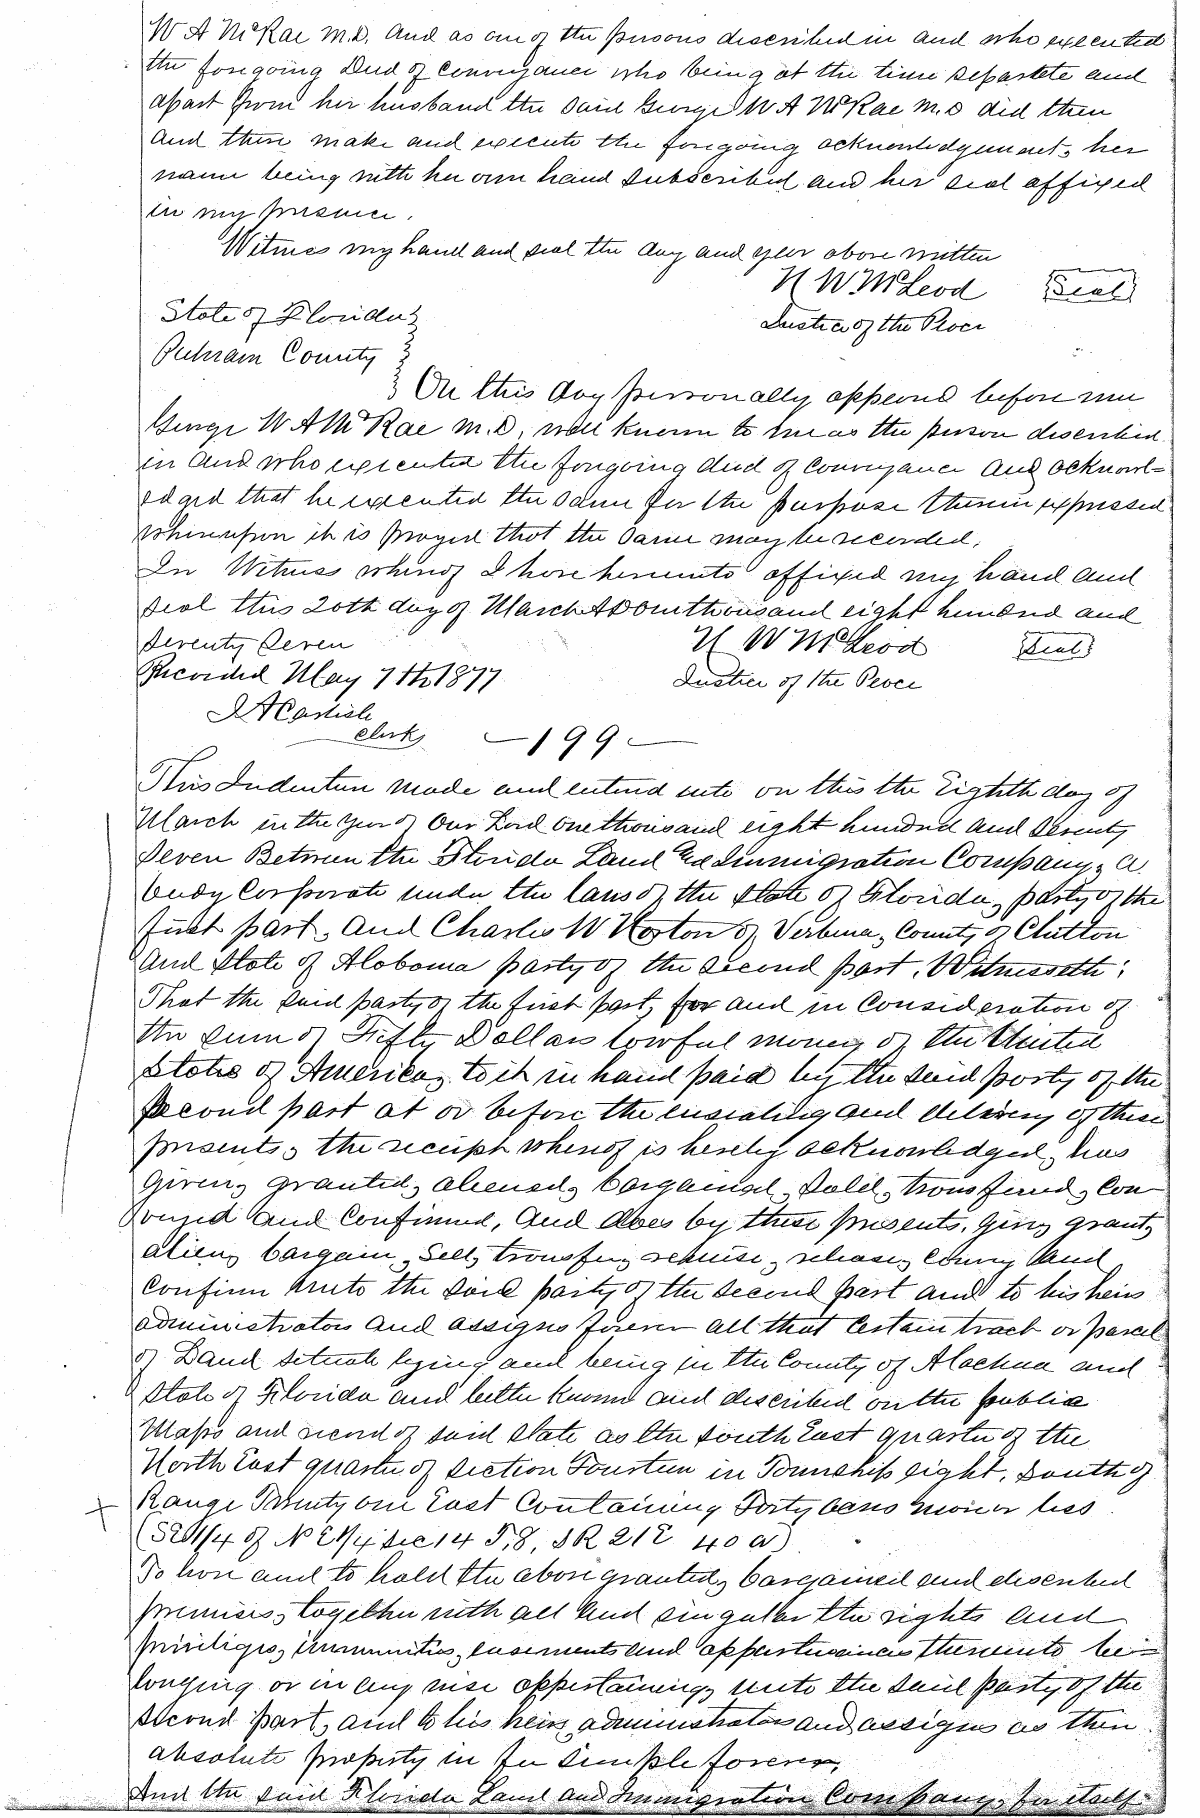 W A McRae M.D. and as one of the persons described in and who executed
the foregoing Deed of conveyance who being at the time separate and
apart from her husband the said George W A McRae M.D did then
and there make and execute the foregoing acknowledgement, her
name being with her own hand subscribed and her seal affixed
in my presence.
Witness my hand and seal the day and year above written
N W McLeod Seal
Justice of the Peace
State of Florida
Putnam County
On this day personally appeared before me
George W A McRae M.D, well known to me as the person described
in and who executed the foregoing deed of conveyance and acknowl=
edged that he executed the same for the purpose therein expressed
whereupon it is prayed that the same may be recorded.
In Witness whereof I have hereunto affixed my hand and
seal this 20th day of March AD one thousand eight hundred and
Seventy Seven
N W McLeod Seal
Recorded May 7th 1877
Justice of the Peace
J A Carlisle
Clerk
— 199 —
This Indenture made and entered into on this the Eighth day of
March in the year of Our Lord one thousand eight hundred and seventy
Seven Between the Florida Land and Immigration Company, a
body Corporate under the laws of the State of Florida, party of the
first part, and Charles W Horton of Verbena, County of Chilton
and State of Alabama party of the second part, Witnesseth;
That the said party of the first part, for and in Consideration of
the sum of Fifty Dollars lawful money of the United
States of America, to it in hand paid by the said party of the
second part at or before the ensealing and delivery of these
presents, the receipt whereof is hereby acknowledged, has
given, granted, aliened, bargained, Sold, transferred, Con
veyed and Confirmed, and does by these presents, give, grant,
alien, bargain, Sell, transfer, remise, release, Convey and
Confirm unto the said party of the second part and to his heirs
administrators and assigns forever all that Certain tract or parcel
of Land situate lying and being in the County of Alachua and
State of Florida and better known and described on the public
Maps and record of said state as the South East quarter of the
North East quarter of section Fourteen in Township eight, South of
Range Twenty one East Containing Forty acres more or less
(SE 1/4 of N E 1/4 Sec 14 T, 8, S R 21 E 40 a)
To have and to hold the above granted, bargained and described
premises, together with all and singular the rights and
priviliges, immunities, easements and appurtenances thereunto be=
longing or in any wise appertaining, unto the said party of the
second part, and to his heirs, administrators and assigns as their
absolute property in fee simple forever,
And the said Florida Land and Immigration Company, for itself